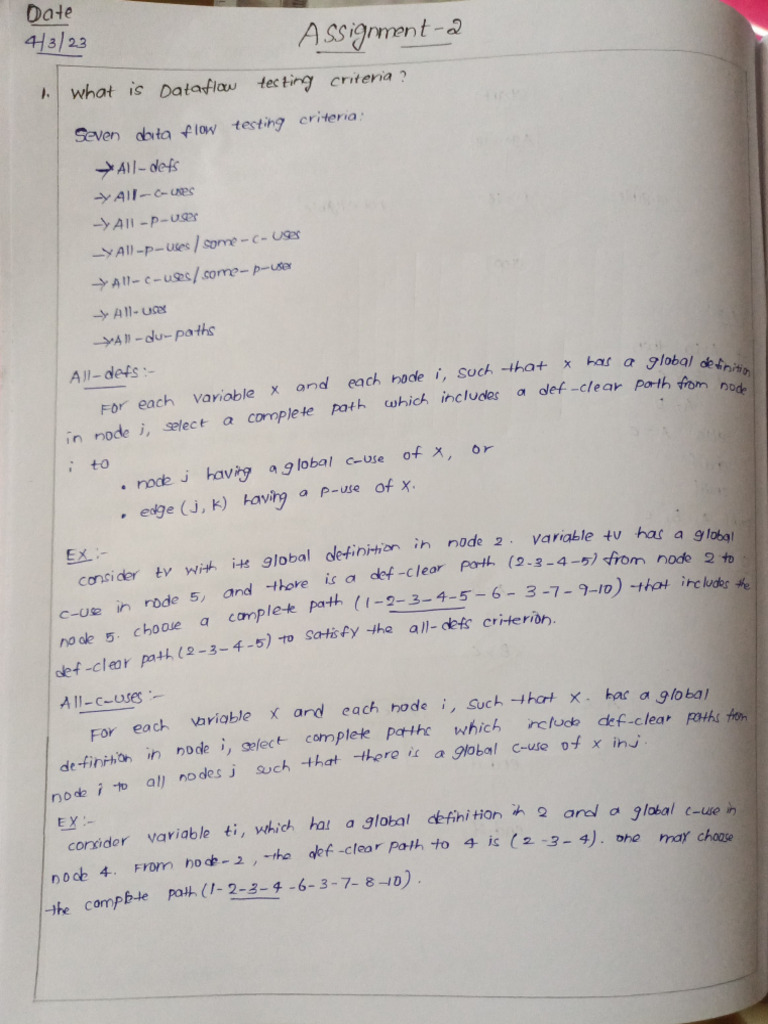 Date
4/3/23
Assignment-2
1. What is Dataflow testing criteria?
Seven data flow testing criteria:
→ All-defs
→ All-c-uses
→ All-p-uses
→ All-p-uses/some-c-uses
→ All-c-uses/some-p-uses
→ All-uses
→ All-du-paths
All-defs:-
For each variable x and each node i, such that x has a global definition
in node i, select a complete path which includes a def-clear path from node
i to
• node j having a global c-use of x, or
• edge (j, k) having a p-use of x.
Ex:-
consider tv with its global definition in node 2. variable tv has a global
c-use in node 5, and there is a def-clear path (2-3-4-5) from node 2 to
node 5. choose a complete path (1-2-3-4-5-6-3-7-9-10) that includes the
def-clear path (2-3-4-5) to satisfy the all-defs criterion.
All-c-uses:-
For each variable x and each node i, such that x. has a global
definition in node i, select complete paths which include def-clear paths from
node i to all nodes j such that there is a global c-use of x in j.
EX:-
consider variable ti, which has a global definition in 2 and a global c-use in
node 4. From node-2, the def-clear path to 4 is (2-3-4). one may choose
the complete path (1-2-3-4-6-3-7-8-10).